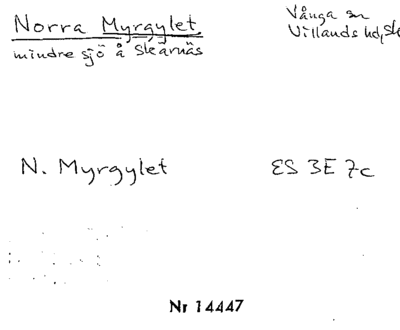 Norra Myrgylet,
mindre sjö å Skärnäs
Vånga sn
Villands hd, Sk
N. Myrgylet
ES 3E 7c
Nr 14447